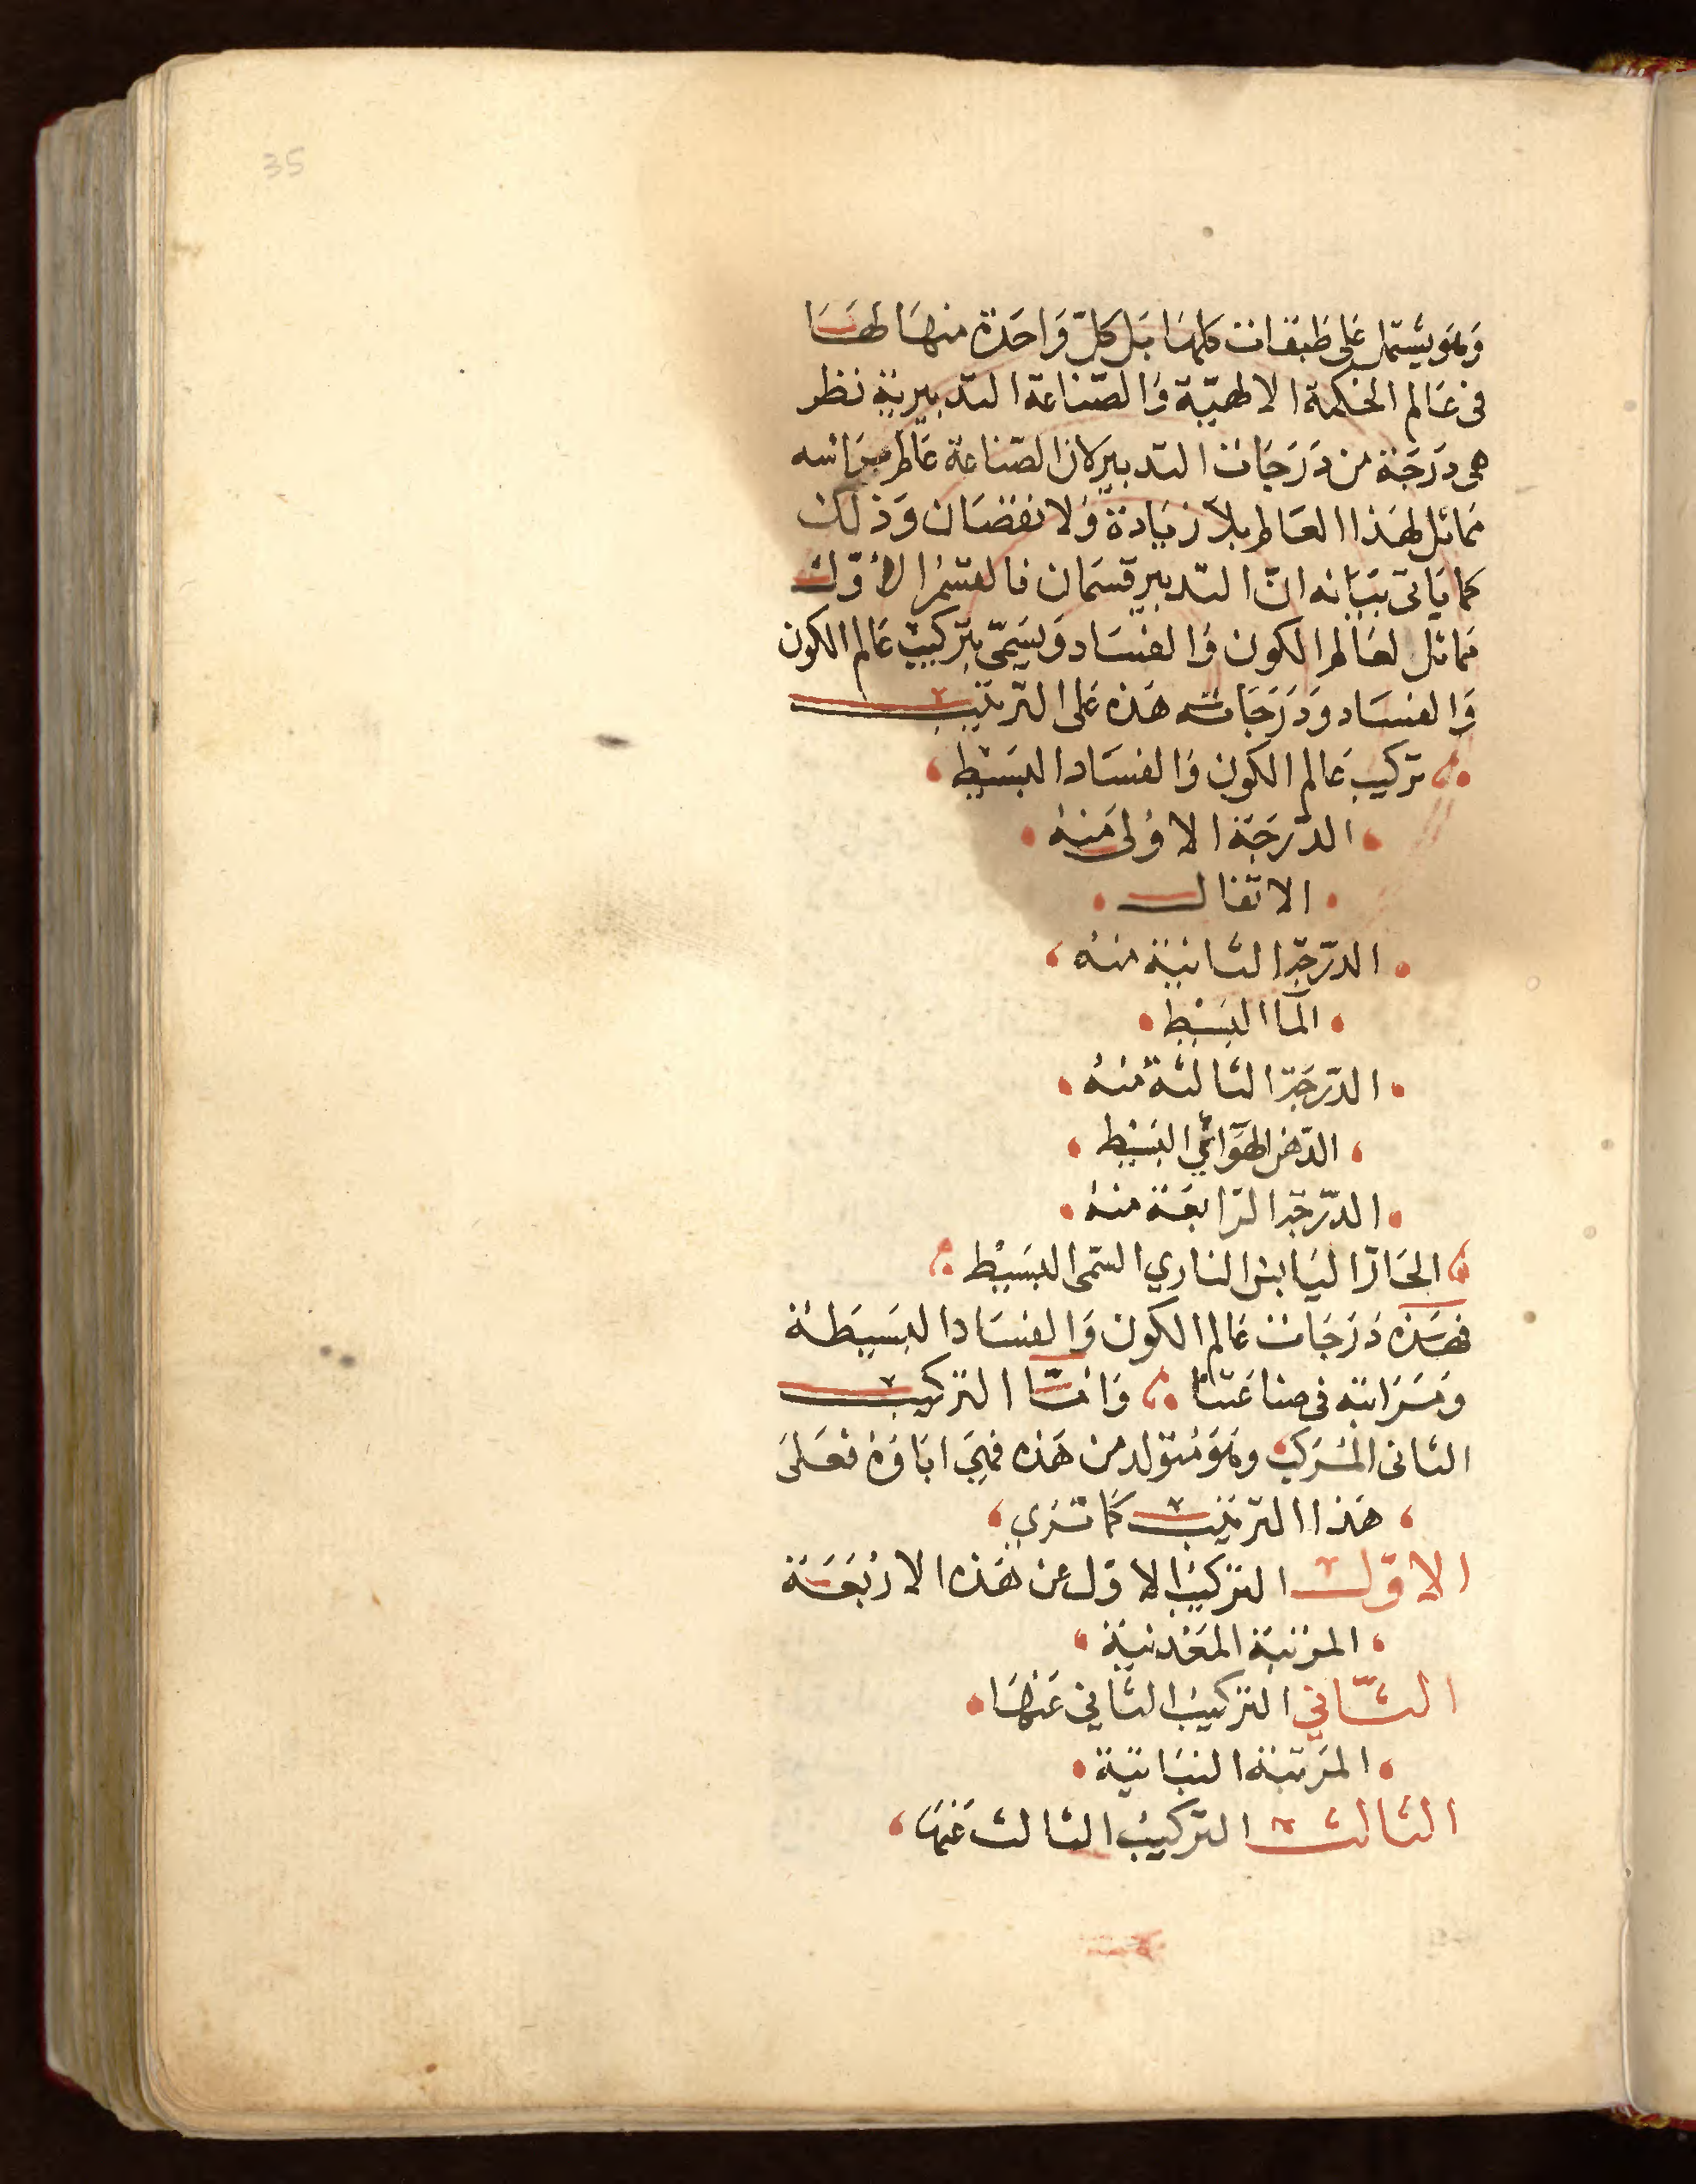 35
وَهُو يشتمل عَلى طَبَقات كلهَا بَل كلّ وَاحدة منهَا لهَا
فى عَالم الحكمة الالهيّة وَالصّناعة التدبيرية نظر
هى درَجَة من دَرَجَات التدبير لان الصّناعة عَالم براسه
مماثل لهَذا العَالم بلا زيَادة وَلا نقصَان وَذلك
كما يَاتى بيَانه انّ التدبير قسمَان فالقسْمُ الأوّل
مماثل لعَالم الكون وَالفسَاد وَيسَمّى بتركيب عَالم الكون
وَالفسَاد وَدَرَجَاته هَذه عَلى الترتيب
تركيب عَالم الكون وَالفسَاد البسَيْط
الدّرجَة الاوْلى منهُ
الاثفال
الدّرجَة الثانية منهُ
المآا البَسيْط
الدّرجَة الثالثة منهُ
الدّهن الهَوَائي البَسيْط
الدّرجَة الرّابعَة منهُ
الحَارّ اليَابسُ الناري السّمى البسَيْط
فهَذه دَرَجَات عَالم الكون وَالفسَاد البسَيطَة
ومَرَاتبَه فى صناعَتنا وَامّا التركيب
الثانى المُرَكب وهو مُتولد من هَذه فهيَ ابَاؤهُ فعَلىَ
هَذا الترتيب كمَا تَرَي
الاوّل التركيبُ الاوّل عن هَذه الاربَعَة
المرْتبَة المَعْدنية
الثّاني التركيبُ الثاني عَنهَا
المَرتبَة النبَاتية
الثالث التركيبُ الثالث عَنهَا